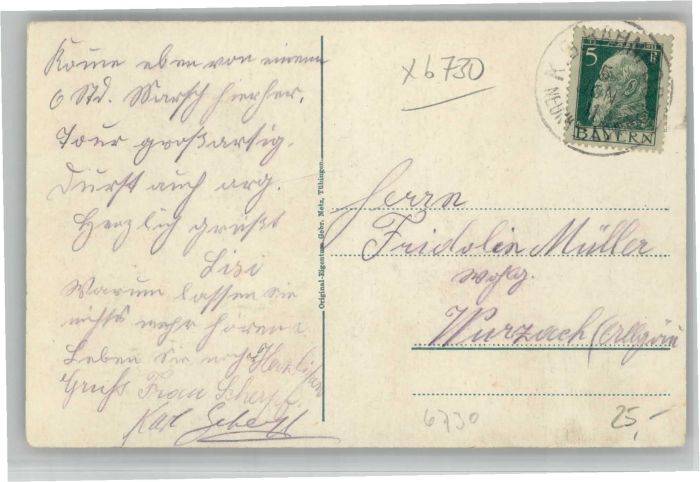 Komme eben von einem
6 Std. Marsch hierher.
Tour großartig.
Durst auch arg.
Herzlich grüßt
Lisi
Warum lassen Sie
nichts mehr hören?
Leben Sie noch? Herzlichen
Gruss Frau
Karl
Original-Eigentum Gebr. Metz, Tübingen
xb 730
5
BAYERN
Herrn
Fridolin Müller
Wurzach (Allgäu
6730
25,-